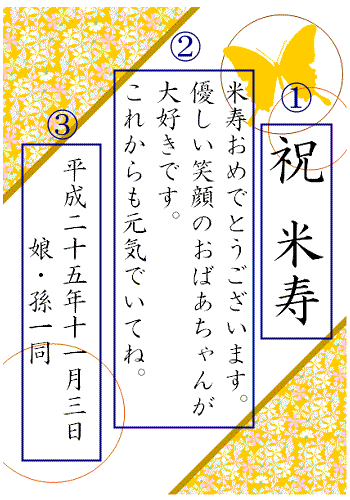 ①
祝 米寿
②
米寿おめでとうございます。
優しい笑顔のおばあちゃんが
大好きです。
これからも元気でいてね。
③
平成二十五年十一月三日
娘・孫一同